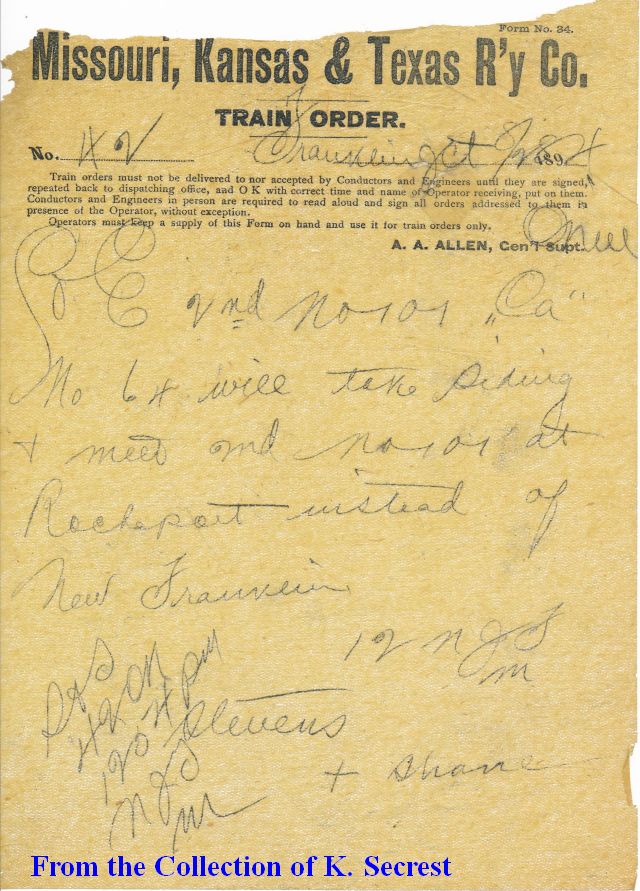 Form No. 34.
Missouri, Kansas & Texas R'y Co.
TRAIN ORDER.
No. 42 Franklin Oct 189
Train orders must not be delivered to nor accepted by Conductors and Engineers until they are signed,
repeated back to dispatching office, and O K with correct time and name of Operator receiving, put on them.
Conductors and Engineers in person are required to read aloud and sign all orders addressed to them in
presence of the Operator, without exception.
Operators must keep a supply of this Form on hand and use it for train orders only.
A. A. ALLEN, Gen'l Supt.
C & E 2nd No 101 "Ca"
No 64 will take siding
+ meet 2nd No 101 at
Rocheport instead of
New Franklin
12 N J F
m
42 OK
Stevens
N J F
m
+ Shane
From the Collection of K. Secrest